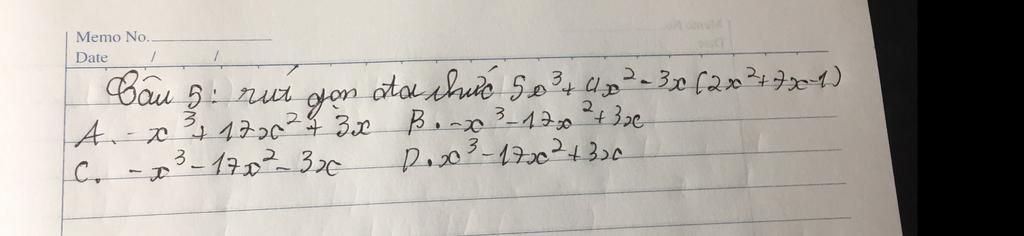 Memo No.
Date / /
Câu 5: rút gọn đa thức 5x³ + 4x² - 3x(2x² + 7x - 1)
A. - x³ + 17x² + 3x B. -x³ - 17x² + 3x
C. - x³ - 17x² - 3x D. x³ - 17x² + 3x